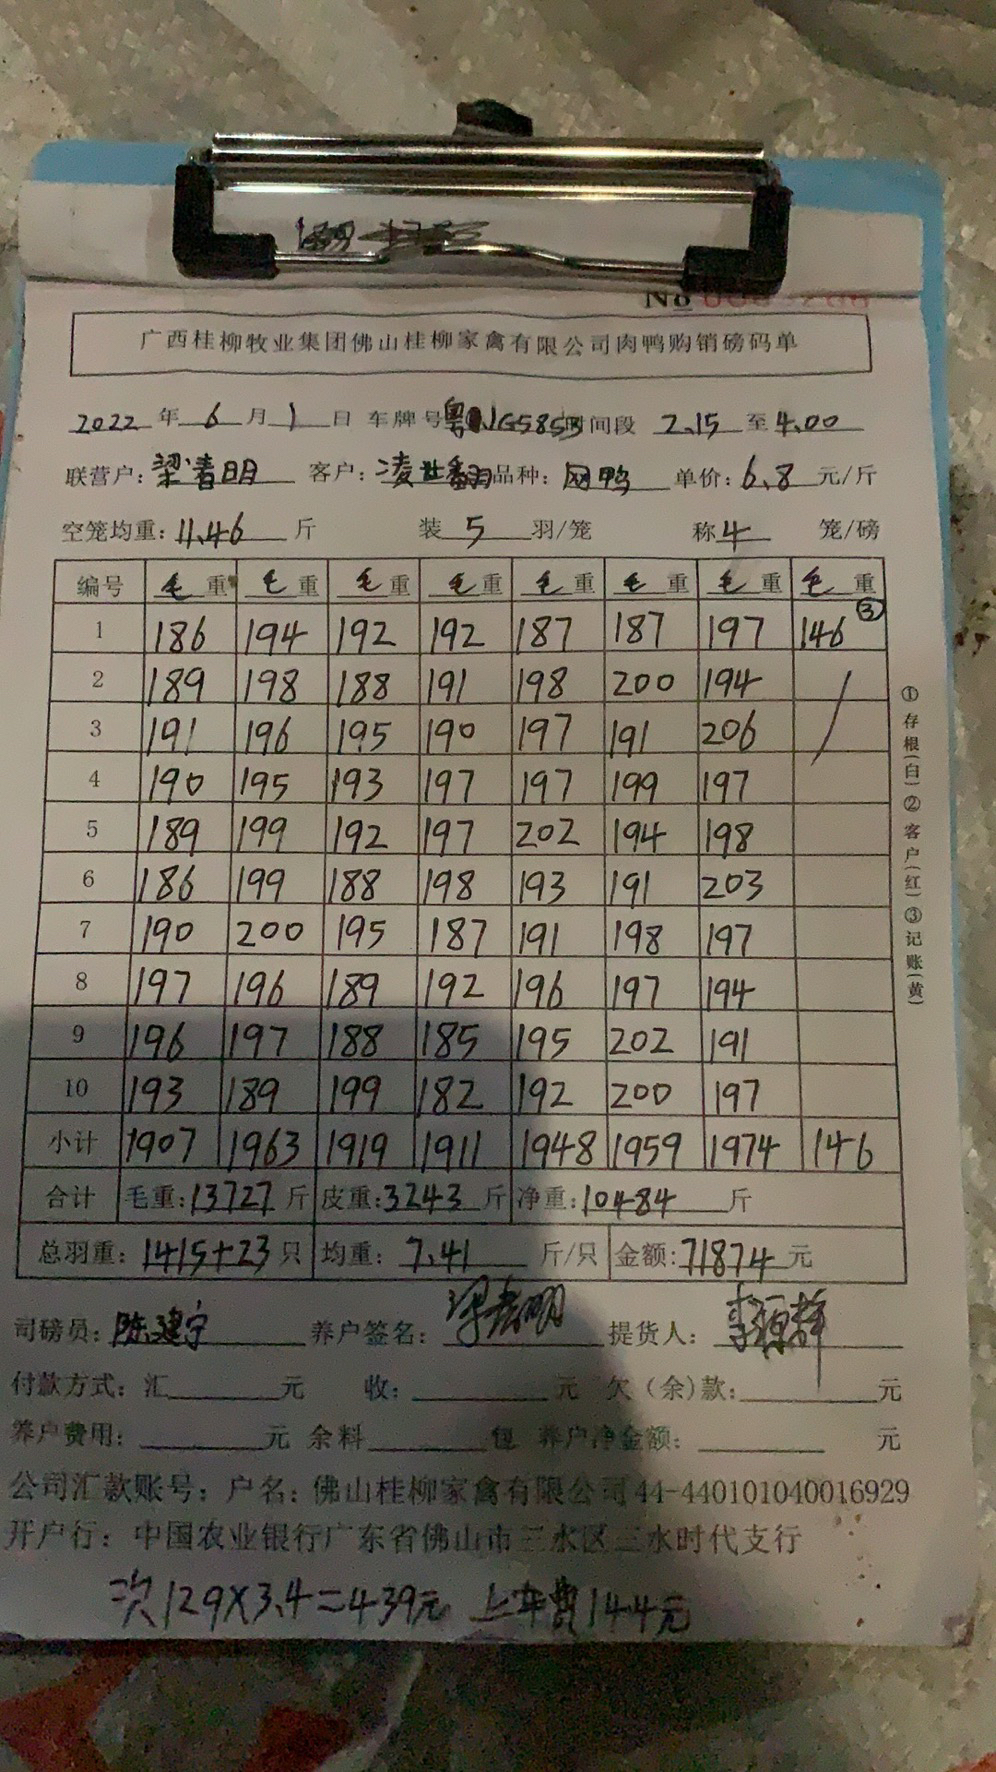 No
广西桂柳牧业集团佛山桂柳家禽有限公司肉鸭购销磅码单
2022 年 6 月 1 日 车牌号 粤 G5853 时间段 2.15 至 4.00
联营户: 梁青明 客户: 凌世翻 品种: 网鸭 单价: 6.8 元/斤
空笼均重: 11.46 斤 装 5 羽/笼 称 4 笼/磅
编号 毛重 毛重 毛重 毛重 毛重 毛重 毛重 毛重
1 186 194 192 192 187 187 197 146 ③
2 189 198 188 191 198 200 194
3 191 196 195 190 197 191 206
4 190 195 193 197 197 199 197
5 189 199 192 197 202 194 198
6 186 199 188 198 193 191 203
7 190 200 195 187 191 198 197
8 197 196 189 192 196 197 194
9 196 197 188 185 195 202 191
10 193 189 199 182 192 200 197
小计 1907 1963 1919 1911 1948 1959 1974 146
合计 毛重: 13727 斤 皮重: 3243 斤 净重: 10484 斤
总羽重: 1415+23 只 均重: 7.41 斤/只 金额: 71874 元
①存根(白)②客户(红)③记账(黄)
司磅员: 陈建宁 养户签名: 梁青明 提货人:
付款方式: 汇 元 收: 元 欠(余)款: 元
养户费用: 元 余料 包 养户净金额: 元
公司汇款账号: 户名: 佛山桂柳家禽有限公司 44-440101040016929
开户行: 中国农业银行广东省佛山市三水区三水时代支行
次 129×3.4=439元 上车费144元